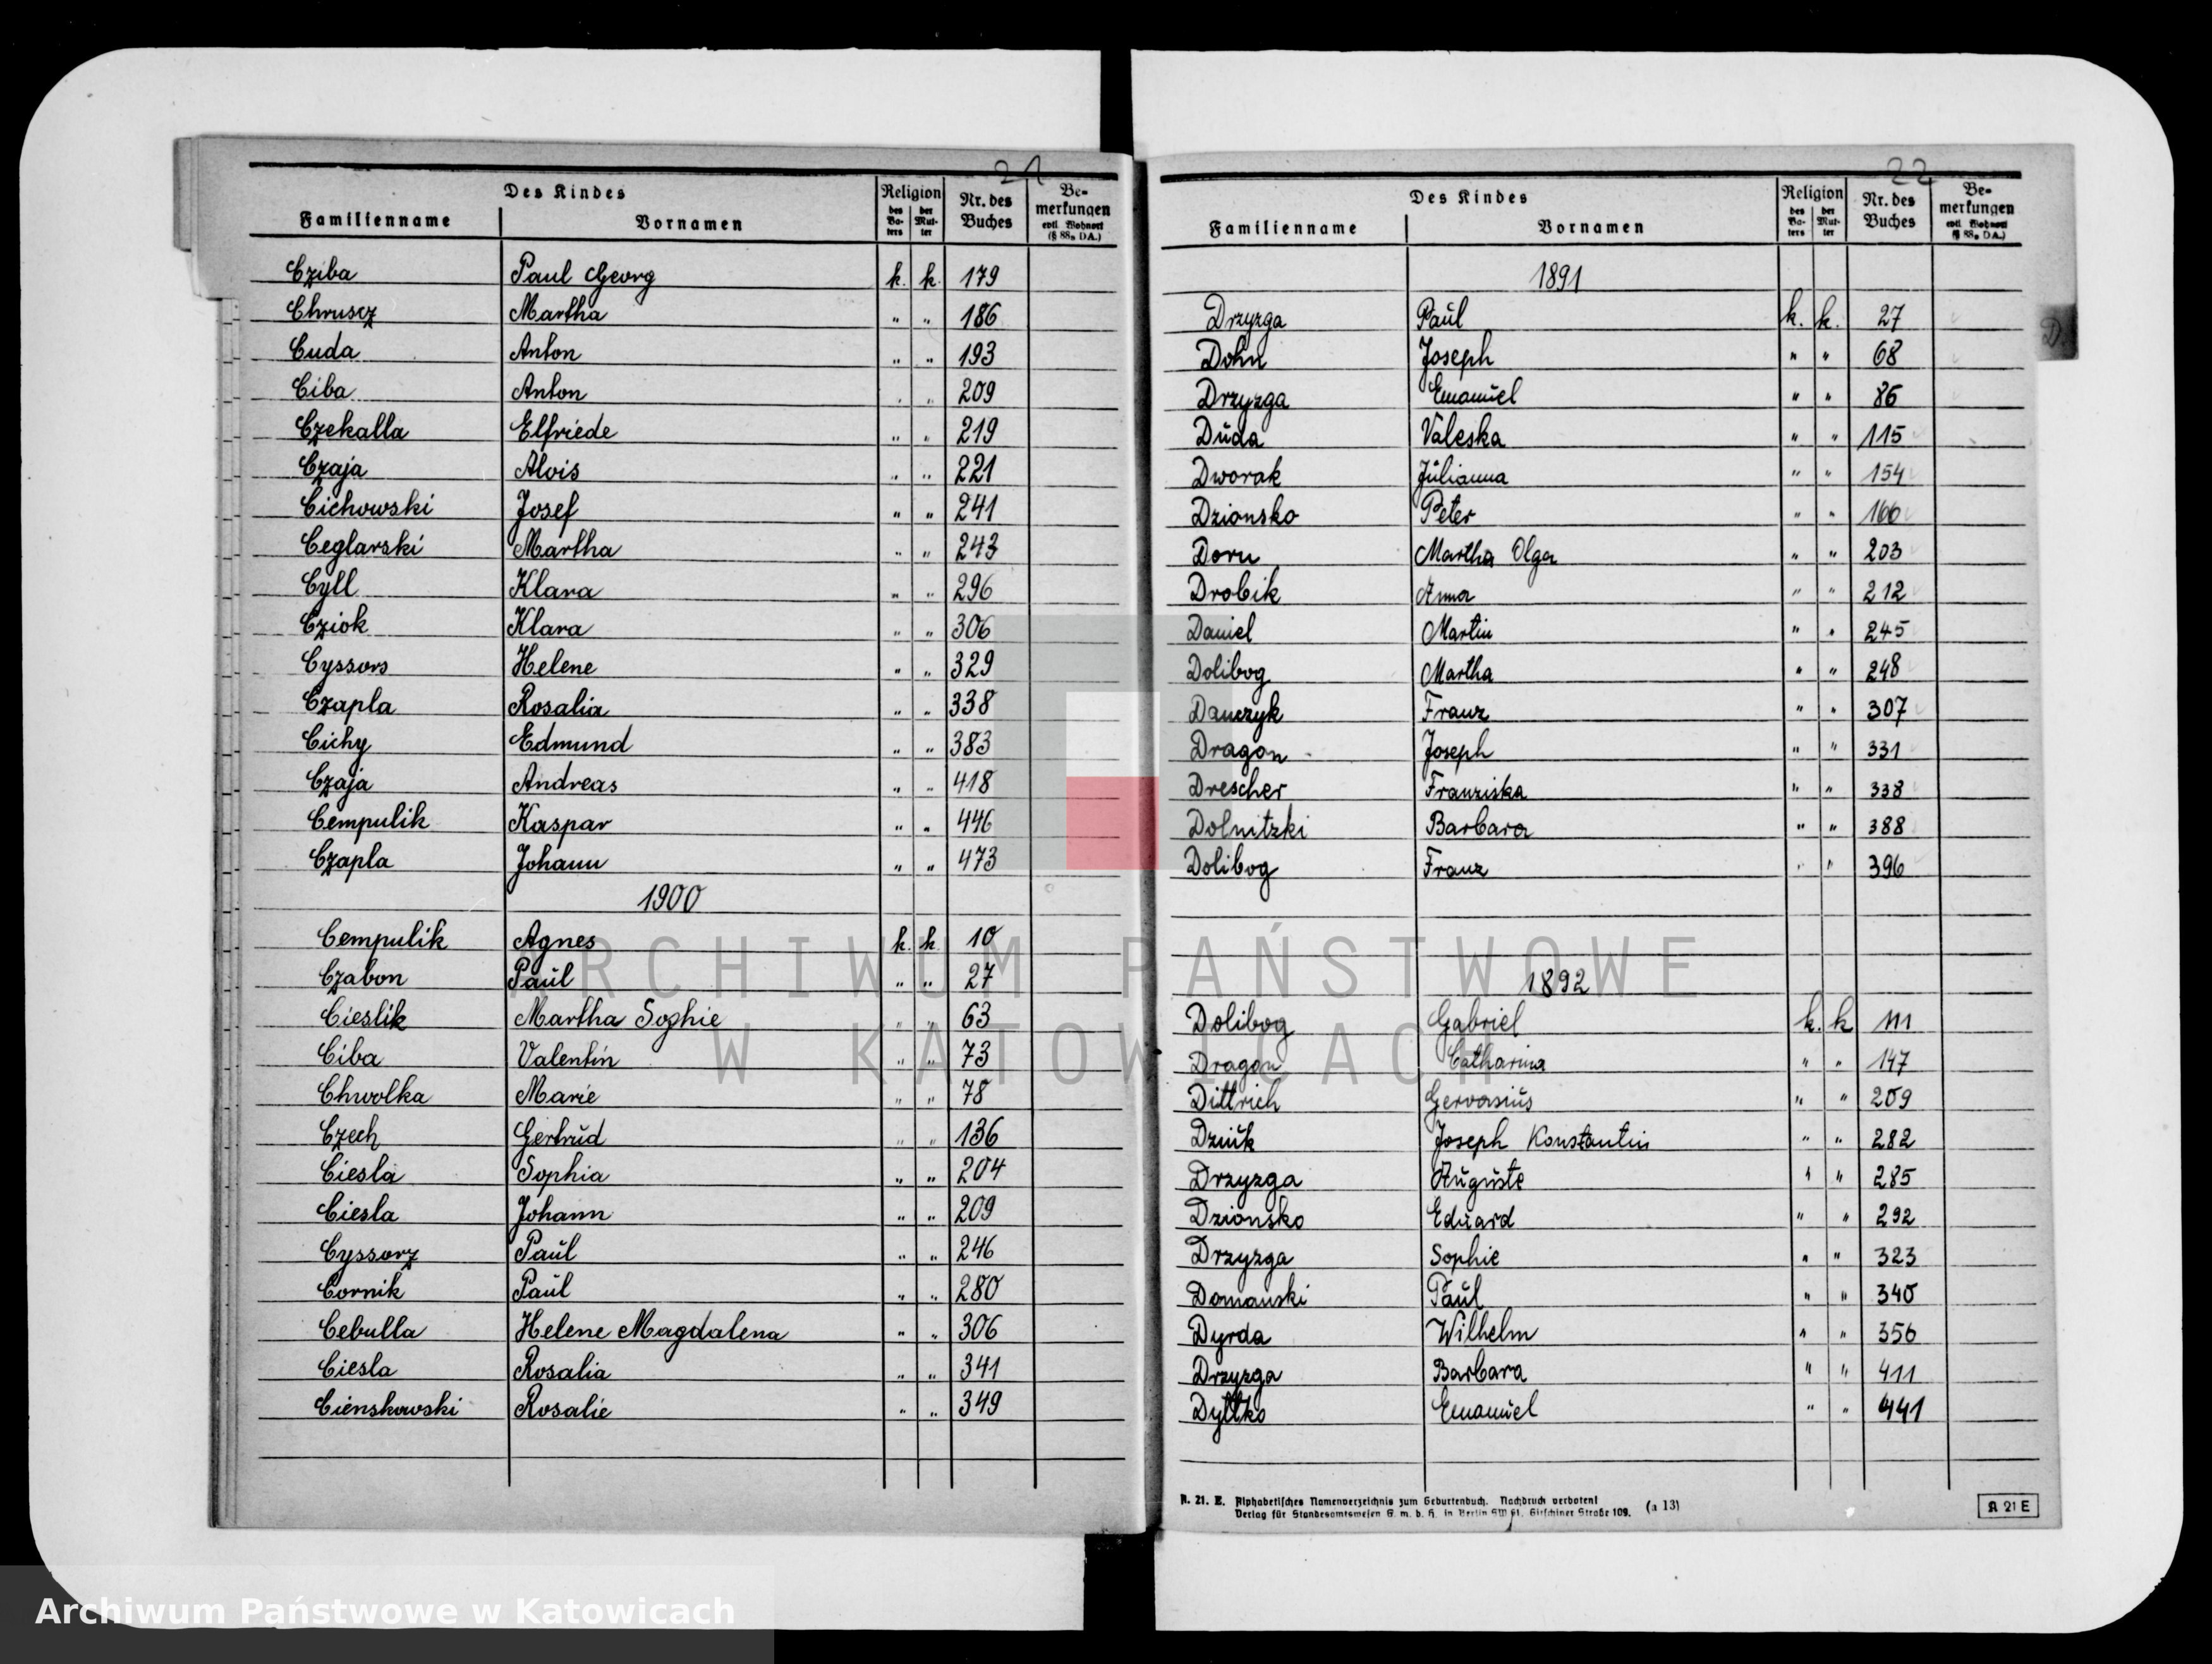 21
Des Kindes
Religion
Nr. des Buches
Bemerkungen evtl. Wohnort (§ 88, DA.)
Familienname Vornamen des Vaters der Mutter
Cziba Paul Georg k. k. 179
Chruscz Martha " " 186
Cuda Anton " " 193
Ciba Anton " " 209
Czekalla Elfriede " " 219
Czaja Alois " " 221
Cichowski Josef " " 241
Ceglarski Martha " " 243
Cyll Klara " " 296
Cziok Klara " " 306
Cyssors Helene " " 329
Czapla Rosalia " " 338
Cichy Edmund " " 383
Czaja Andreas " " 418
Cempulik Kaspar " " 446
Czapla Johann " " 473
1900
Cempulik Agnes k. k. 10
Czabon Paul " " 27
Cieslik Martha Sophie " " 63
Ciba Valentin " " 73
Chwolka Marie " " 78
Czech Gertrud " " 136
Ciesla Sophia " " 204
Ciesla Johann " " 209
Cyssorz Paul " " 246
Cornik Paul " " 280
Cebulla Helene Magdalena " " 306
Ciesla Rosalia " " 341
Cienskowski Rosalie " " 349
22
Des Kindes
Religion
Nr. des Buches
Bemerkungen evtl. Wohnort (§ 88, DA.)
Familienname Vornamen des Vaters der Mutter
1891
Drzyzga Paul k. k. 27
Dohn Joseph " " 68
Drzyzga Emanuel " " 86
Duda Valeska " " 115
Dworak Julianna " " 154
Dzionsko Peter " " 166
Doru Martha Olga " " 203
Drobik Anna " " 212
Daniel Martin " " 245
Dolibog Martha " " 248
Danczyk Franz " " 307
Dragon Joseph " " 331
Drescher Franziska " " 338
Dolnitzki Barbara " " 388
Dolibog Franz " " 396
1892
Dolibog Gabriel k. k 111
Dragon Catharina " " 147
Dittrich Gervasius " " 209
Dziuk Joseph Konstantin " " 282
Drzyzga Auguste " " 285
Dzionsko Eduard " " 292
Drzyzga Sophie " " 323
Domanski Paul " " 340
Dyrda Wilhelm " " 356
Drzyzga Barbara " " 411
Dyllko Emanuel " " 441
D.
A. 21. E. Alphabetisches Namenverzeichnis zum Geburtenbuch. Nachdruck verboten!
Verlag für Standesamtswesen G. m. b. H. in Berlin SW 61. Gitschiner Straße 109. (a 13)
A 21 E
ARCHIWUM PAŃSTWOWE
W KATOWICACH
Archiwum Państwowe w Katowicach